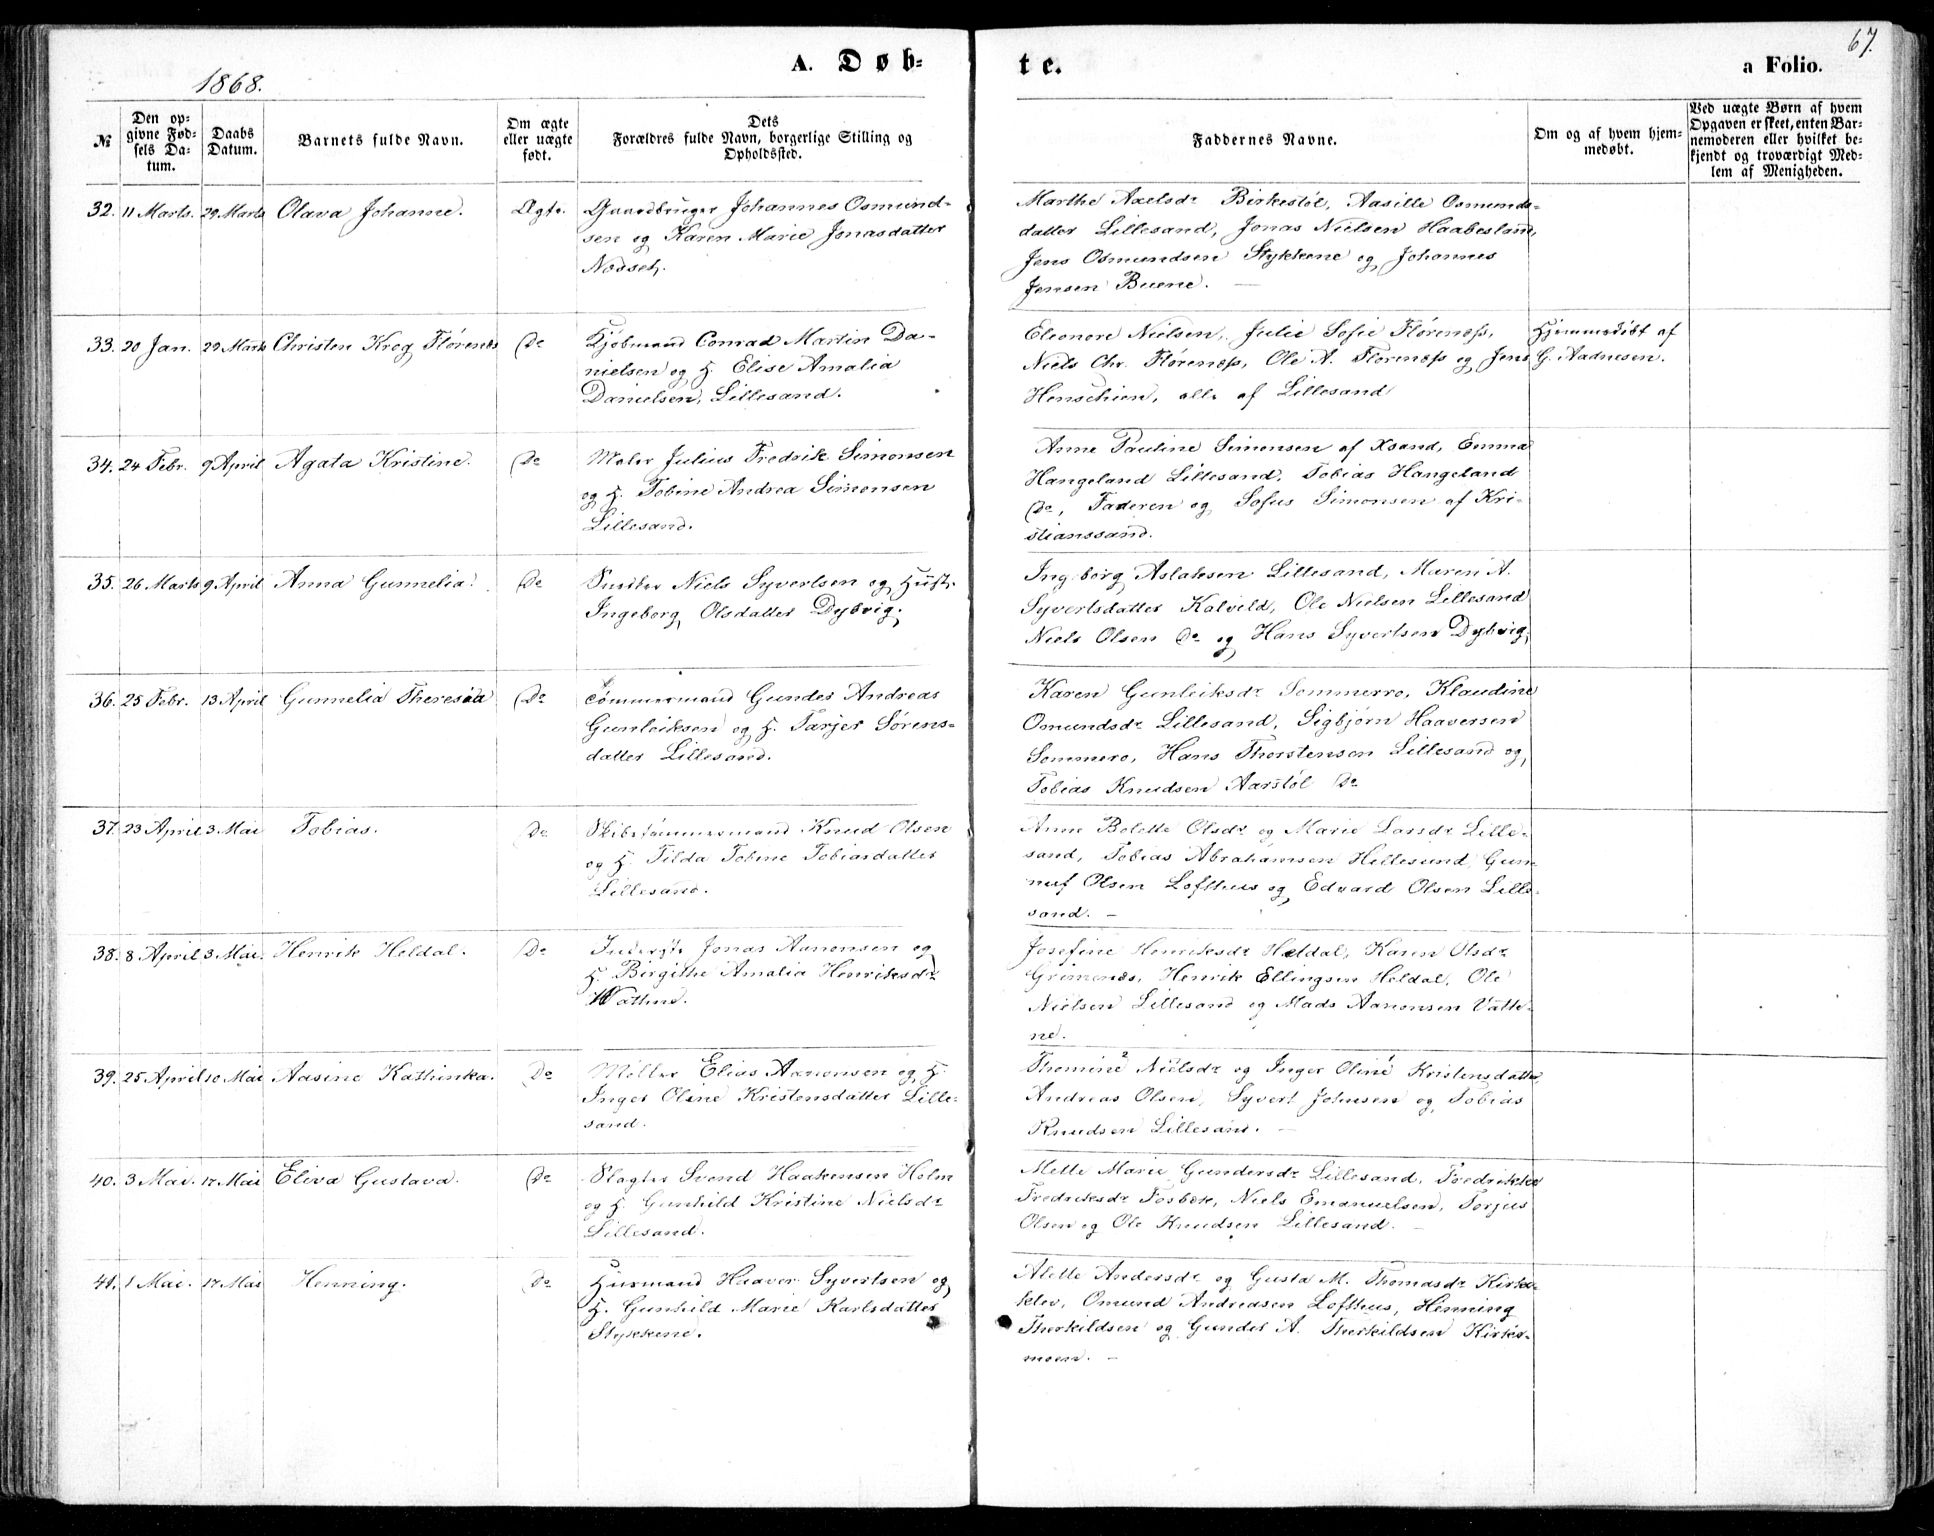 67.
1868.
A. Døb-
te.
a Folio.
№
Den op-
givne Fød-
sels Da-
tum.
Daabs
Datum.
Barnets fulde Navn.
Om ægte
eller uægte
født.
Dets
Forældres fulde Navn, borgerlige Stilling og
Opholdssted.
Faddernes Navne.
Om og af hvem hjem-
medøbt.
Ved uægte Børn af hvem
Opgaven er skeet, enten Bar-
nemoderen eller hvilket be-
kjendt og troværdigt Med-
lem af Menigheden.
32. 11 Marts. 29 Marts Olava Johanne. Ægte. Gaardbruger Johannes Osmund-
sen og Karen Marie Jonasdatter
Marthe Axelsdr Birkestøl, Aasille Osmunds-
datter Lillesand, Jonas Nielsen Haabesland,
Jens Osmundsen Stykkene og Johannes
Jensen Buene. —
33. 20 Jan. 29 Marts Christen Krog Flørenæs Do Kjøbmand Conrad Martin Da-
nielsen og H. Elise Amalia
Danielsen, Lillesand.
Eleonore Nielsen, Julie Sofie Flørenæss,
Niels Chr. Flørenæss, Ole A. Florenæss og Jens
Henschien, alle af Lillesand
Hjemmedøbt af
G. Aadnesen.
34. 24 Febr. 9 April Agata Kristine. Do Maler Julius Fredrik Simonsen
og H. Tobine Andrea Simonsen
Lillesand.
Anne Pauline Simonsen af Xsand, Emma
Hangeland Lillesand, Tobias Hangeland
Do, Faderen og Sofus Simonsen af Kri-
stianssand.
35. 26 Marts 9 April Anna Gunnelia. Do Snedker Niels Syvertsen og Hust.
Ingeborg Olsdatter Dybvig.
Ingeborg Aslaksen Lillesand, Maren A.
Syvertsdatter Kalveld, Ole Nielsen Lillesand
Niels Olsen Do og Hans Syvertsen Dybvig,
36. 25 Febr. 13 April Gunnelia Theresia Do Tømmermand Gunder Andreas
Gunleiksen og H. Tarjer Sørens-
datter Lillesand.
Karen Gunleiksdr Sommerro, Klaudine
Omundsdr Lillesand, Sigbjørn Haaversen
Sommero, Hans Thorstensen Lillesand og
Tobias Knudsen Aarstøl Do
37. 23 April 3 Mai Tobias. Do Skibstømmermand Knud Olsen
og H. Tilda Tobine Tobiasdatter
Lillesand.
Anne Bolette Olsdr og Marie Larsdr Lille-
sand, Tobias Abrahamsen Hillesund, Gun-
nuf Olsen Lofthus og Edvard Olsen Lille-
sand. —
38. 8 April 3 Mai. Henrik Heldal. Do Inderst Jonas Aanonsen og
H. Birgithe Amalia Henriksdr
Vattne.
Josefine Henriksdr Heldal, Karen Olsdr
Grimenæs, Henrik Ellingsen Heldal, Ole
Nielsen Lillesand og Mads Aanonsen Vatte-
ne.
39. 25 April 10 Mai Aasine Kathinka. Do Møller Elias Aanonsen og H.
Inger Oline Kristensdatter Lille-
sand.
Thomine Nielsdr og Inger Oline Kristensdatter,
Andreas Olsen, Syvert Johnsen og Tobias
Knudsen Lillesand. —
40. 3 Mai. 17 Mai Eliva Gustava. Do Slagter Svend Haakensen Holm
og H. Gunhild Kristine Nielsdr
Lillesand.
Mette Marie Gundersdr Lillesand, Fredrikke
Fredriksdr Fosbæk, Niels Emanuelsen, Torjus
Olsen og Ole Knudsen Lillesand. —
41. 1 Mai. 17 Mai Henning. Do Husmand Haaver Syvertsen og
H. Gunhild Marie Karlsdatter
Stykkene.
Alette Andersdr og Gusta M. Thomasdr Kirke-
klev, Omund Andreasen Lofthus, Henning
Therkildsen og Gunder A. Therkildsen Kirke-
moen. —